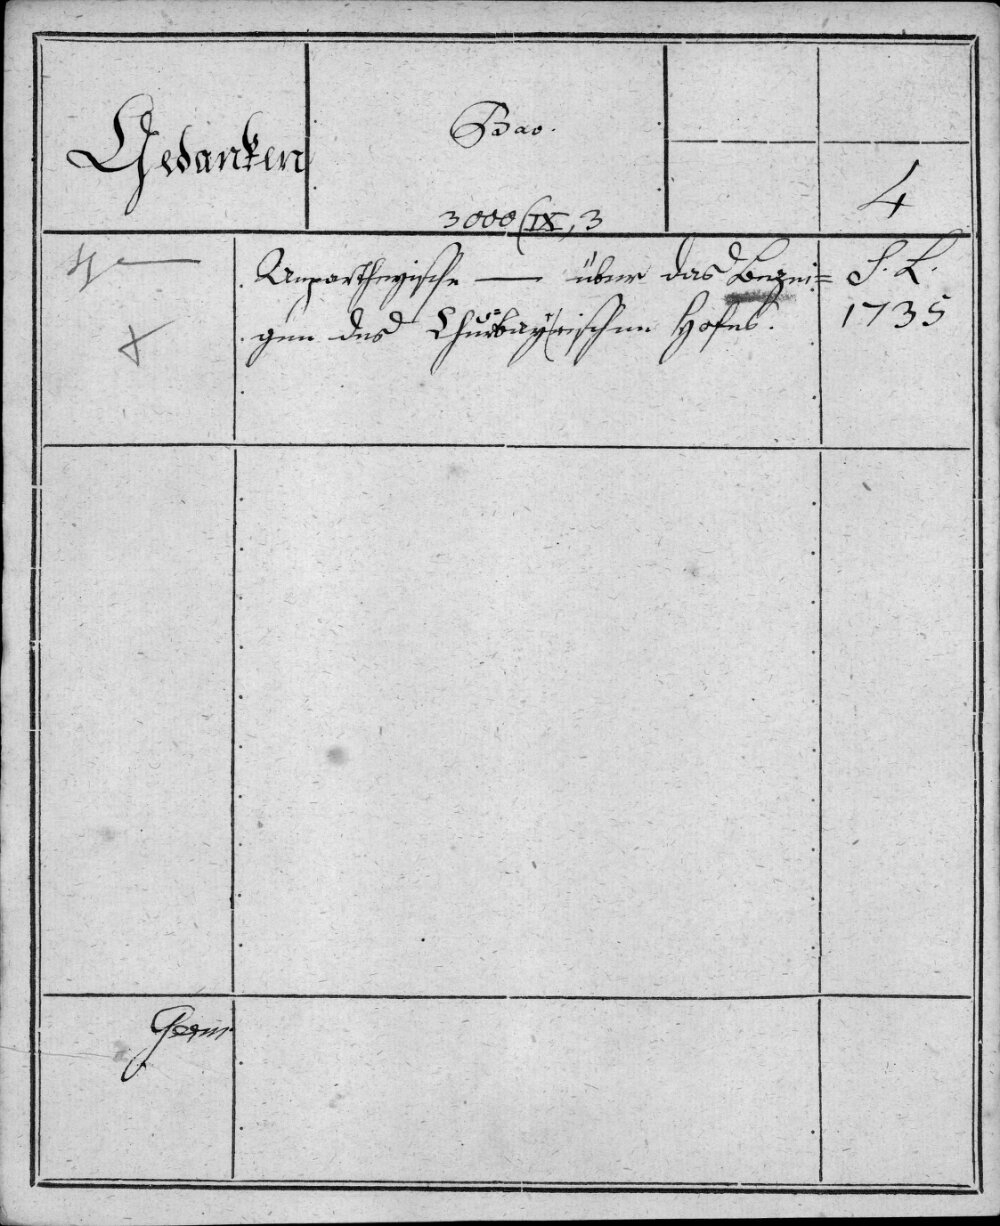 Gedanken
Bav.
3000 (IX, 3
4
4° —
Unpartheyische — über das Bezei=
gen des Churbayrischen Hofes.
S. L.
1735
Germ.